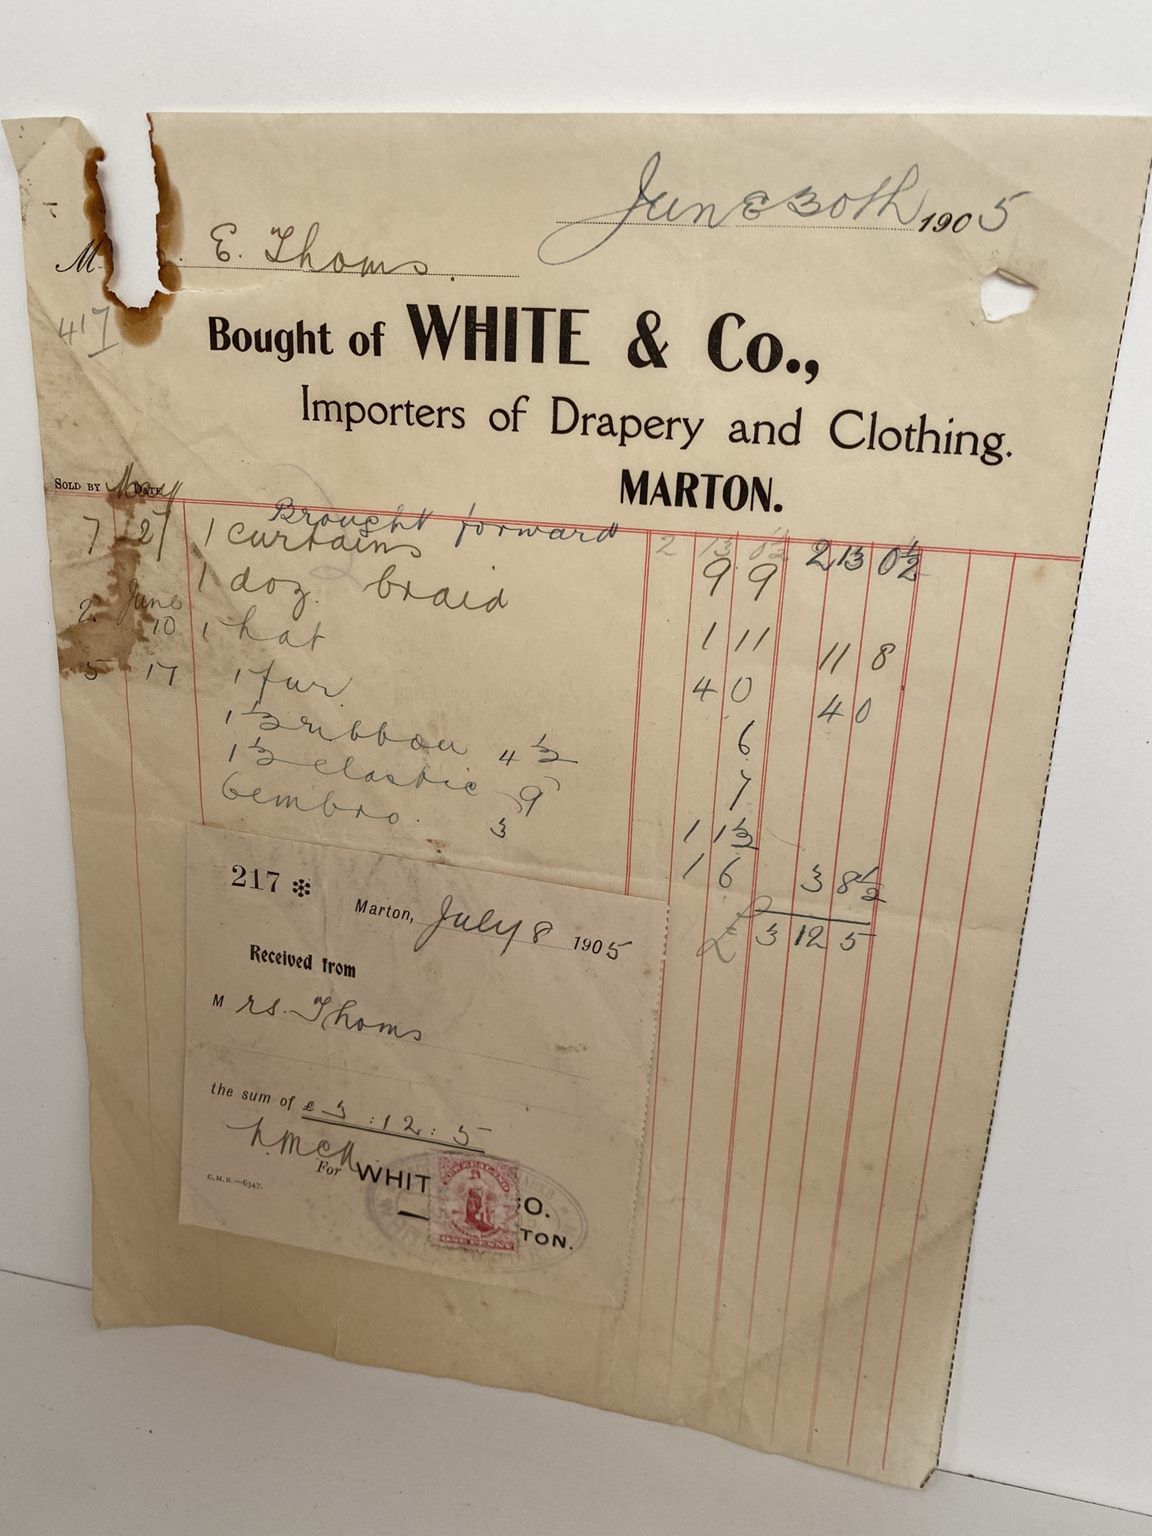 June 30th 1905
M . E. Thoms.
417
Bought of WHITE & Co.,
Importers of Drapery and Clothing.
MARTON.
SOLD BY May DATE
Brought forward 2 13 0½ 2 13 0½
7 27 1 curtains 9 9
1 doz. braid 1 11 11 8
2 June 10 1 hat 4 0 4 0
5 17 1 fur 6
1½ ribbon 4½ 7
1½ elastic 9 1 1½
6 embro. 3 1 6 3 8½
£ 3 12 5
217
Marton, July 8 1905
Received from
Mrs. Thoms
the sum of £3:12:5
For WHIT O.
TON.
C.M.B.—6347.
NEW ZEALAND
ONE PENNY